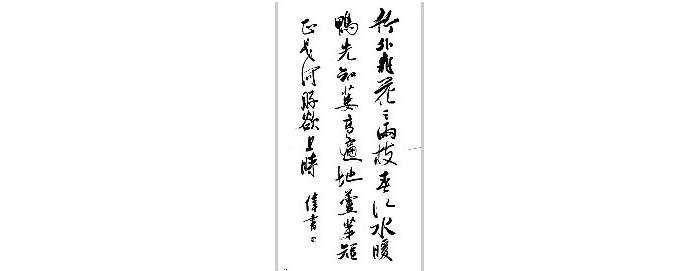 竹外桃花三兩枝春江水暖
鴨先知蔞蒿遍地蘆芽短
正是河豚欲上時 偉書